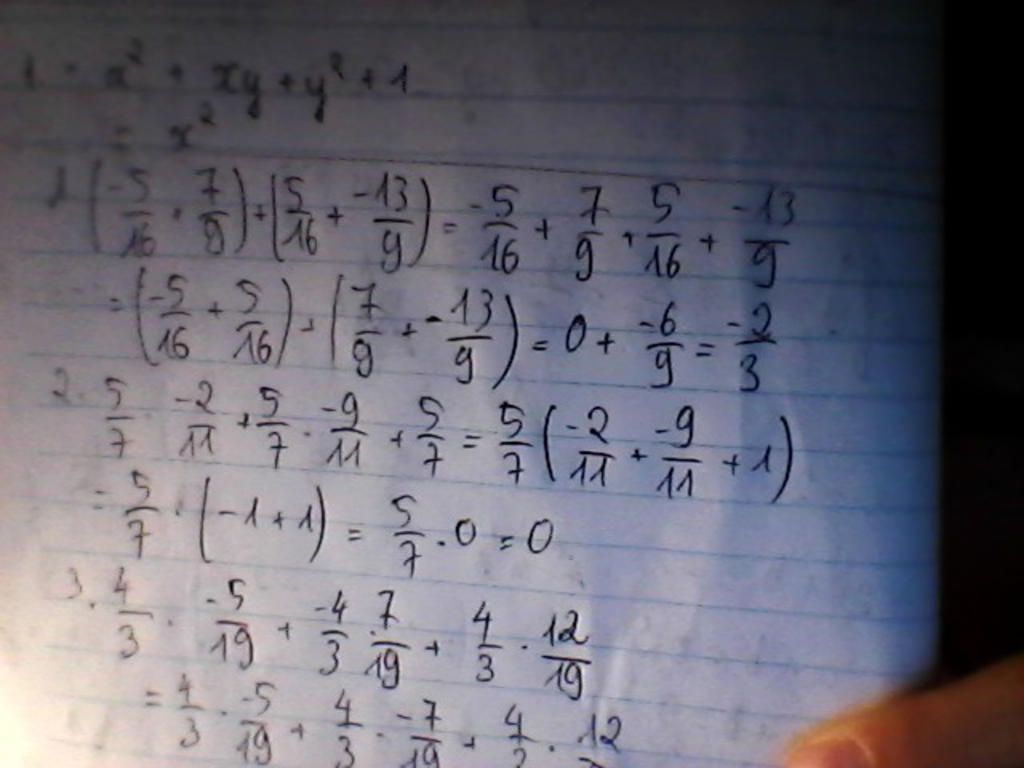 1. x² + xy + y² + 1
= x²
1. (-5/16 + 7/9) + (5/16 + -13/9) = -5/16 + 7/9 + 5/16 + -13/9
= (-5/16 + 5/16) + (7/9 + -13/9) = 0 + -6/9 = -2/3
2. 5/7 · -2/11 + 5/7 · -9/11 + 5/7 = 5/7 (-2/11 + -9/11 + 1)
= 5/7 · (-1 + 1) = 5/7 · 0 = 0
3. 4/3 · -5/19 + -4/3 · 7/19 + 4/3 · 12/19
= 4/3 · -5/19 + 4/3 · -7/19 + 4/3 · 12